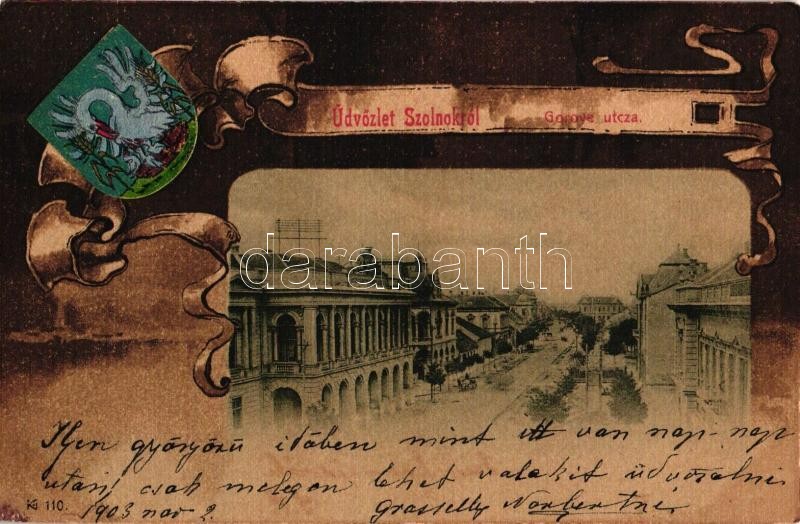 Üdvözlet Szolnokról Gorove utcza.
darabanth
Ilyen gyönyörű időben mint itt van nap-nap
után csak melegen lehet valakit üdvözölni
Ki 110. 1903 nov 2. Grasselly Norbertné